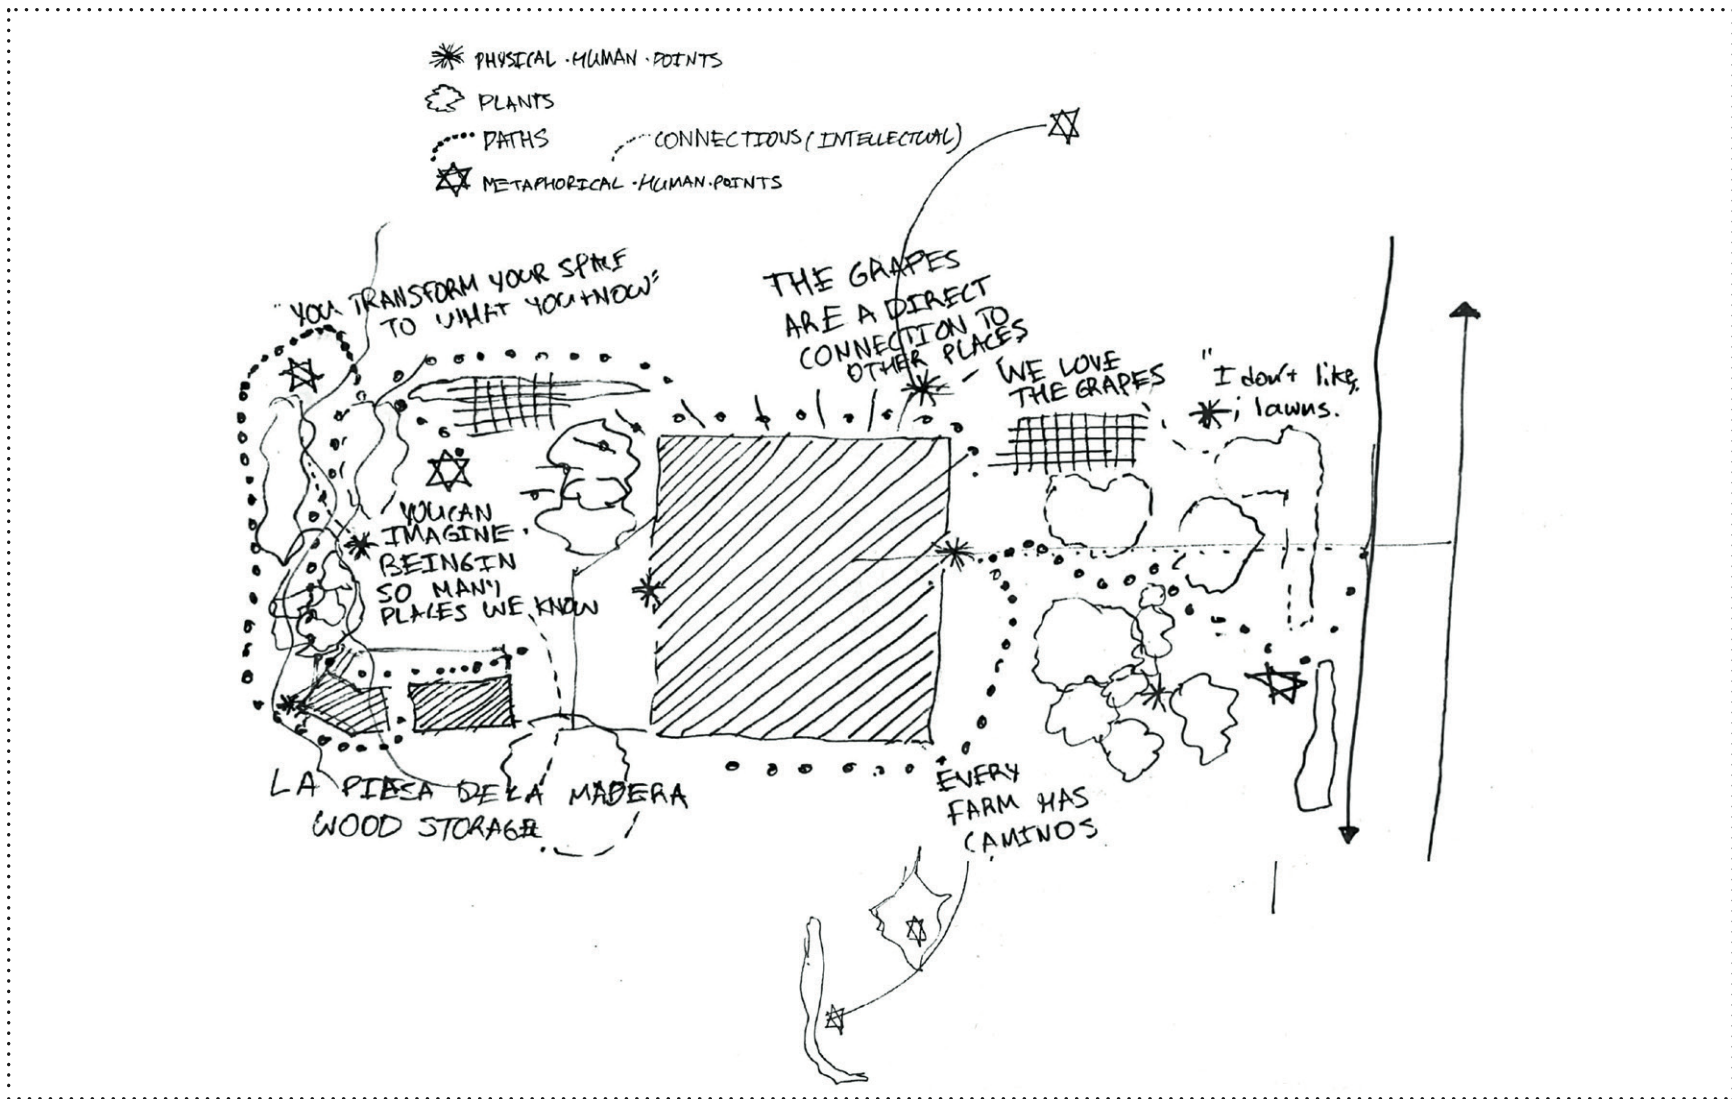 PHYSICAL·HUMAN·POINTS
PLANTS
PATHS
CONNECTIONS (INTELLECTUAL)
METAPHORICAL·HUMAN·POINTS
"YOU TRANSFORM YOUR SPACE
TO WHAT YOU KNOW"
THE GRAPES
ARE A DIRECT
CONNECTION TO
OTHER PLACES
WE LOVE
THE GRAPES
"I don't like
lawns.
YOU CAN
IMAGINE
BEING IN
SO MANY
PLACES WE KNOW
LA PIESA DE LA MADERA
WOOD STORAGE
EVERY
FARM HAS
CAMINOS